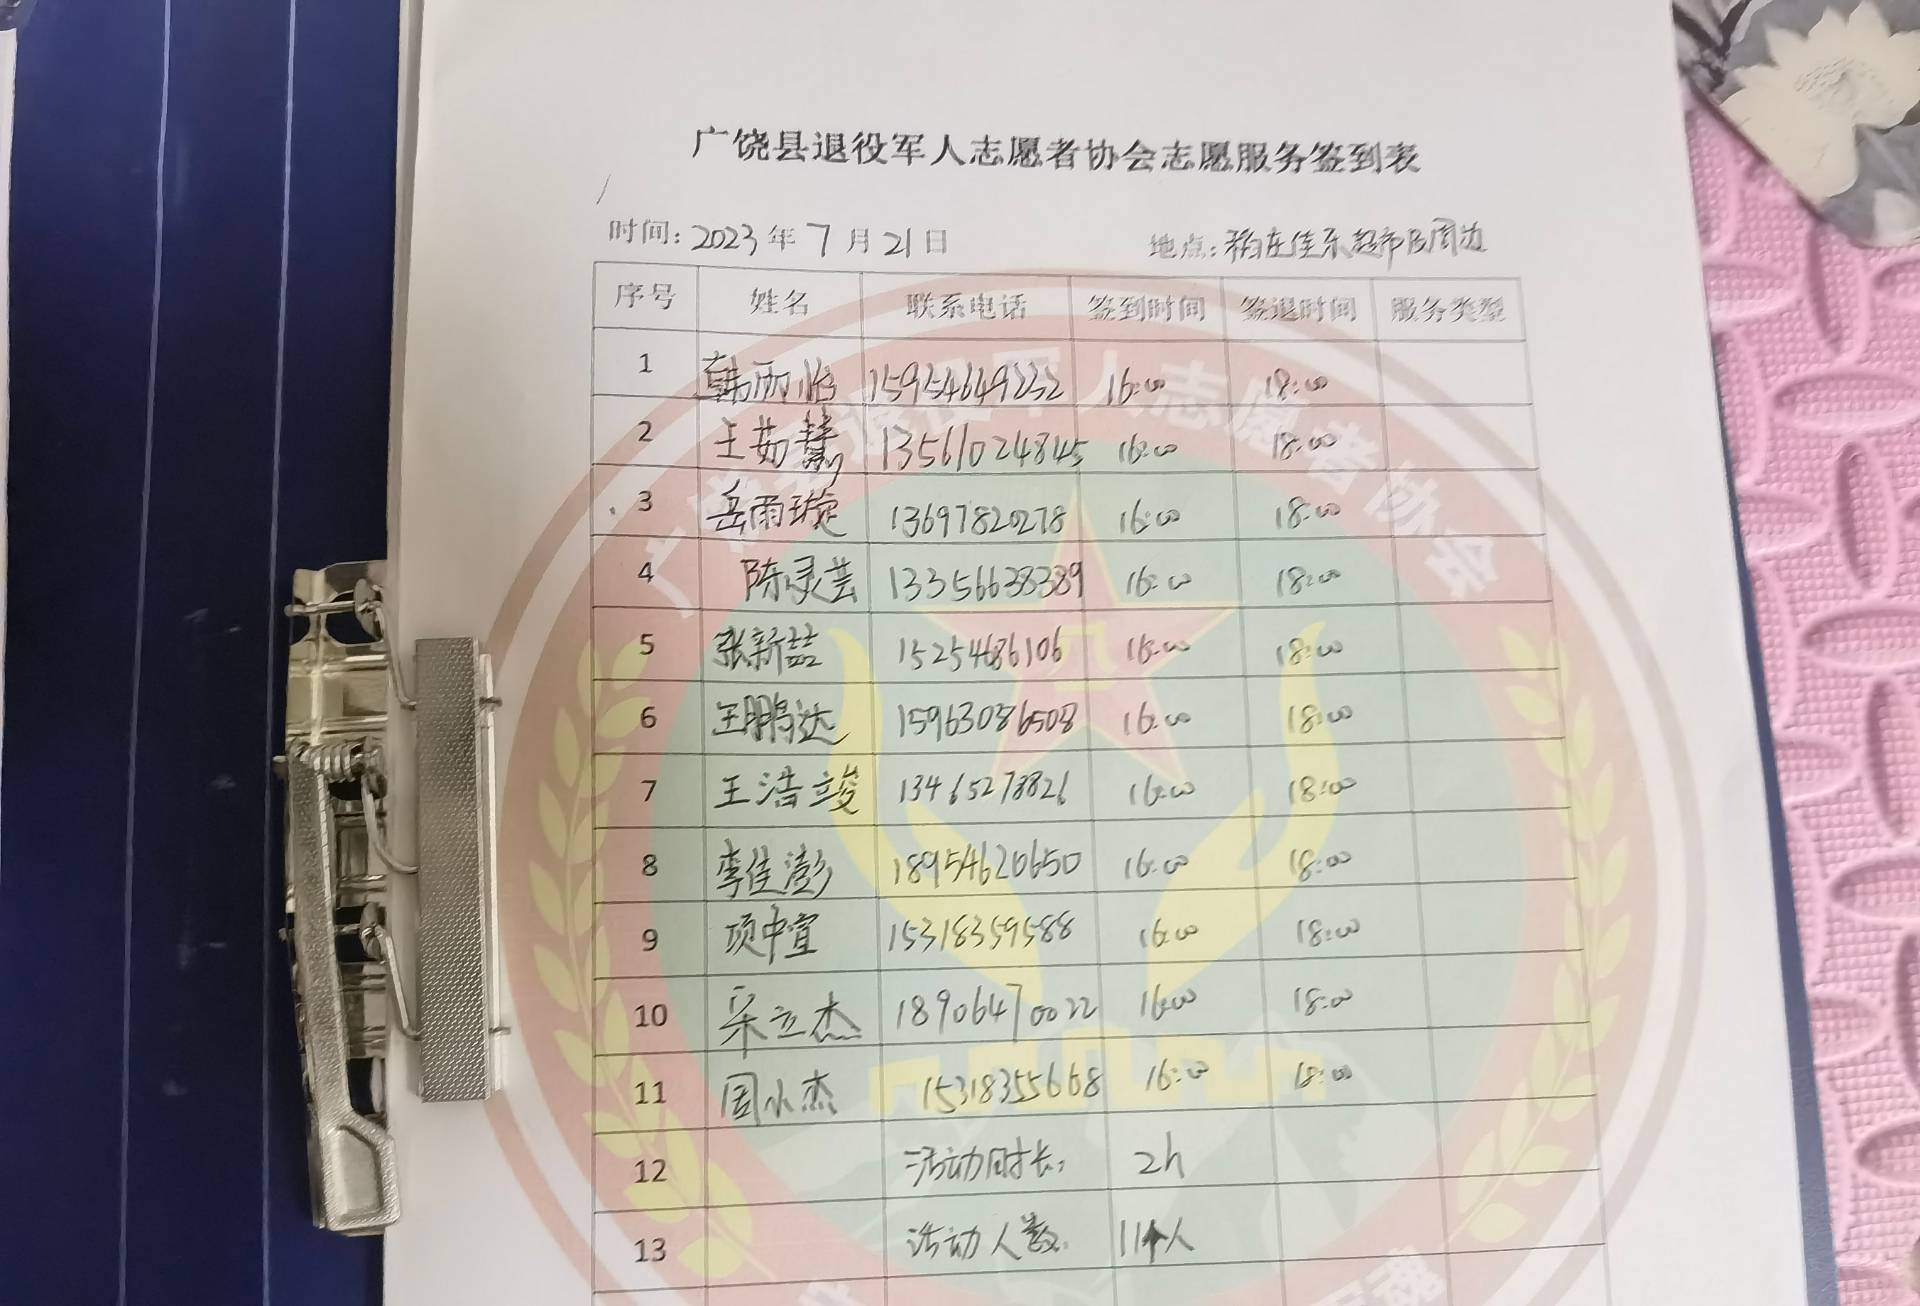 广饶县退役军人志愿者协会志愿服务签到表
时间: 2023 年 7 月 21 日 地点: 稻庄佳乐超市及周边
序号 姓名 联系电话 签到时间 签退时间 服务类型
1 韩雨怡 15954649232 16:00 18:00
2 王茹慧 13561024845 16:00 18:00
3 岳雨璇 13697820278 16:00 18:00
4 陈灵芸 13356638389 16:00 18:00
5 张新喆 15254686106 16:00 18:00
6 王鹏达 15963086508 16:00 18:00
7 王浩竣 13465273826 16:00 18:00
8 李佳澎 18954620650 16:00 18:00
9 项中宜 15318359588 16:00 18:00
10 宋立杰 18906470022 16:00 18:00
11 周小杰 15318355668 16:00 18:00
12 活动时长: 2h
13 活动人数: 11个人